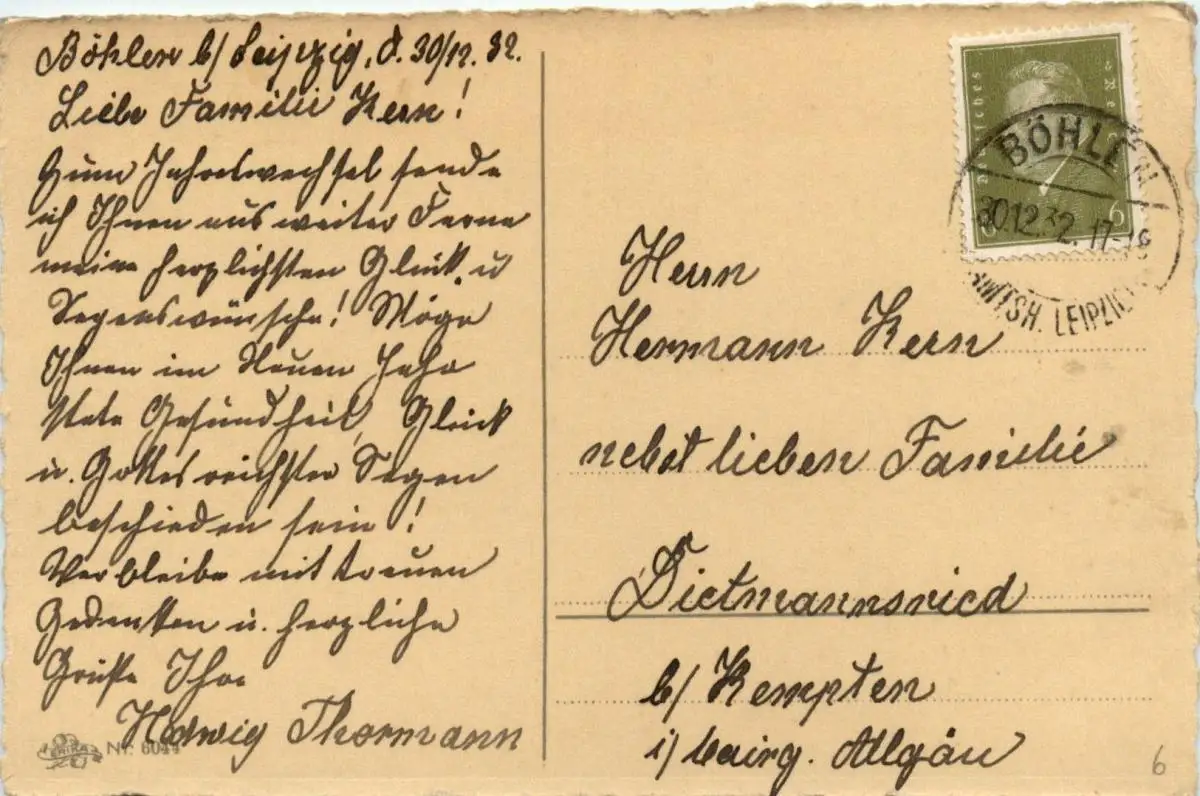 Böhlen b/ Leipzig, d. 30/12. 32.
Liebe Familie Kern!
Zum Jahreswechsel sende
ich Ihnen aus weiter Ferne
meine herzlichsten Glück u
Segenswünsche! Möge
Ihnen im Neuen Jahr
stets Gesundheit, Glück
u. Gottes reichster Segen
beschieden sein!
Verbleibe mit treuen
Gedenken u. herzliche
Grüße Ihre
Hedwig Thormann
ERIKA Nr. 6044
Deutsches Reich
6 6
BÖHLEN
30.12.32. 17-18
AMTSH. LEIPZIG
Herrn
Hermann Kern
nebst lieben Familie
Dietmannsried
b/ Kempten
i/ bairg. Allgäu
6